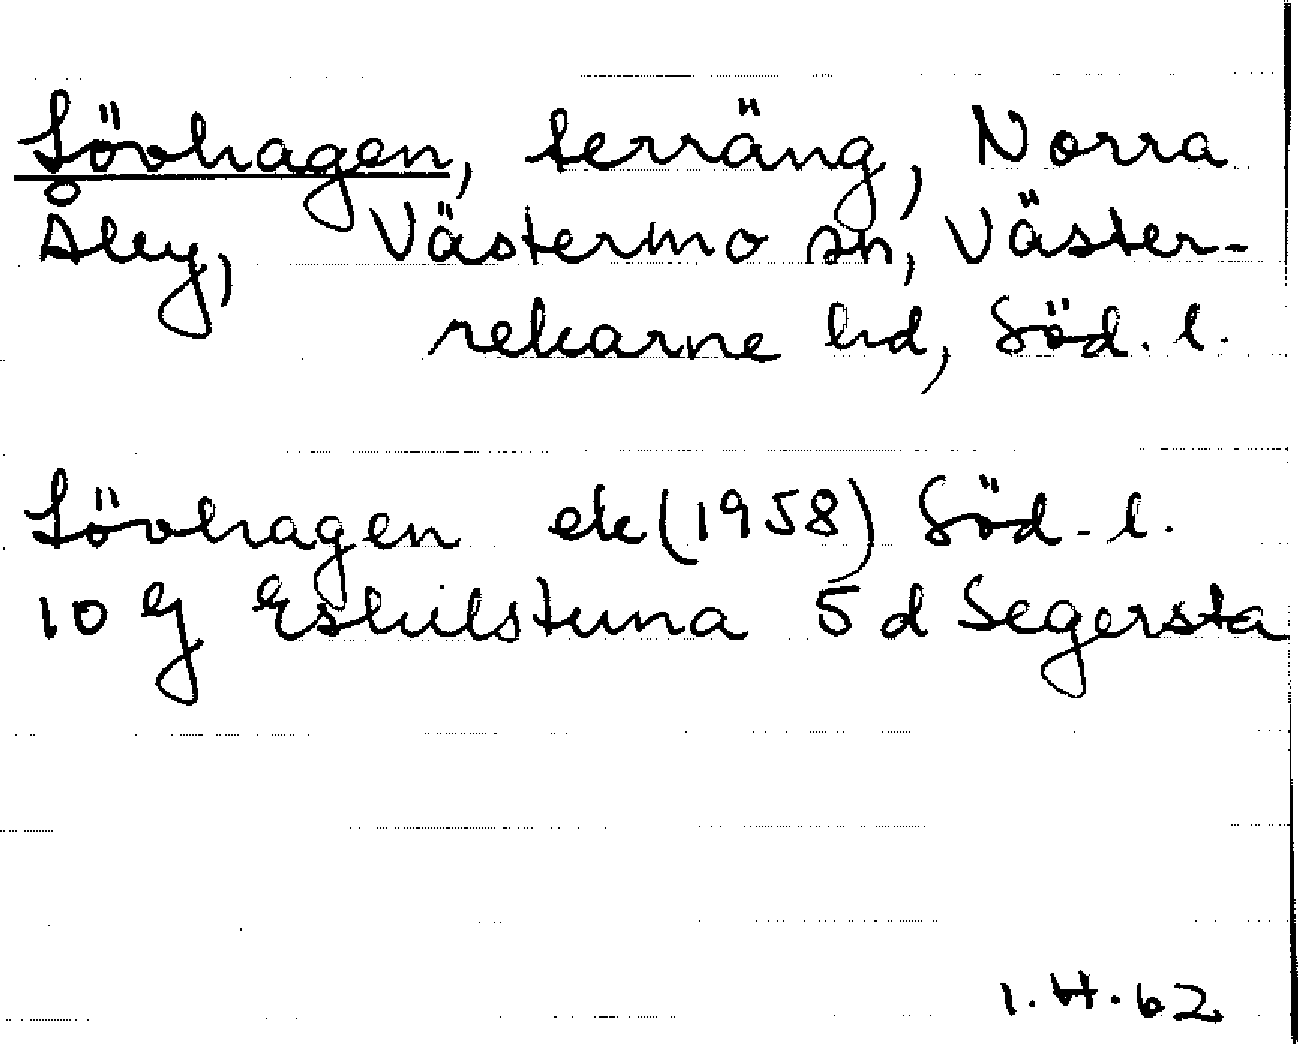 Lövhagen, terräng, Norra
Åley, Västermo sn, Väster-
rekarne hd, Söd. l.
Lövhagen ek (1958) Söd. l.
10 G Eskilstuna 5 d Segersta
1.H.62